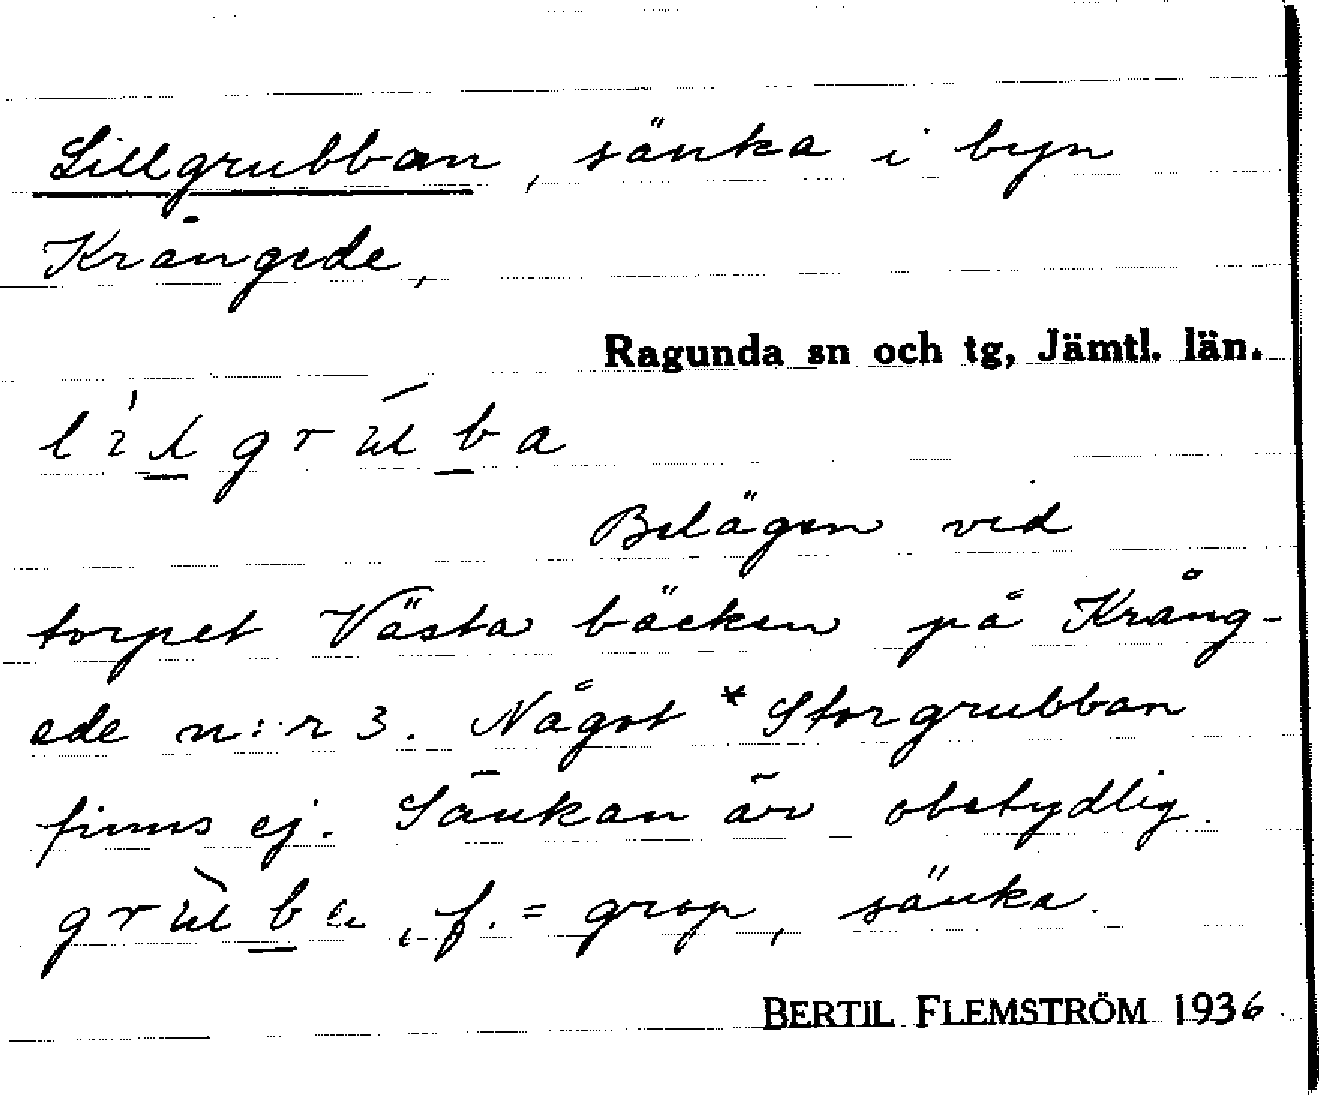 Lillgrubban, sänka i byn
Krångede,
Ragunda sn och tg, Jämtl. län.
Belägen vid
torpet Västa bäcken på Krång-
ede n:r 3. Något *Storgrubban
finns ej. Sänkan är obetydlig.
f. = grop, sänka.
BERTIL FLEMSTRÖM 1936